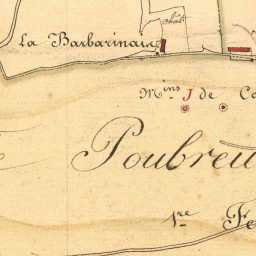 La Barbarinais
Mins J de Co
Poubreu
1re Fe